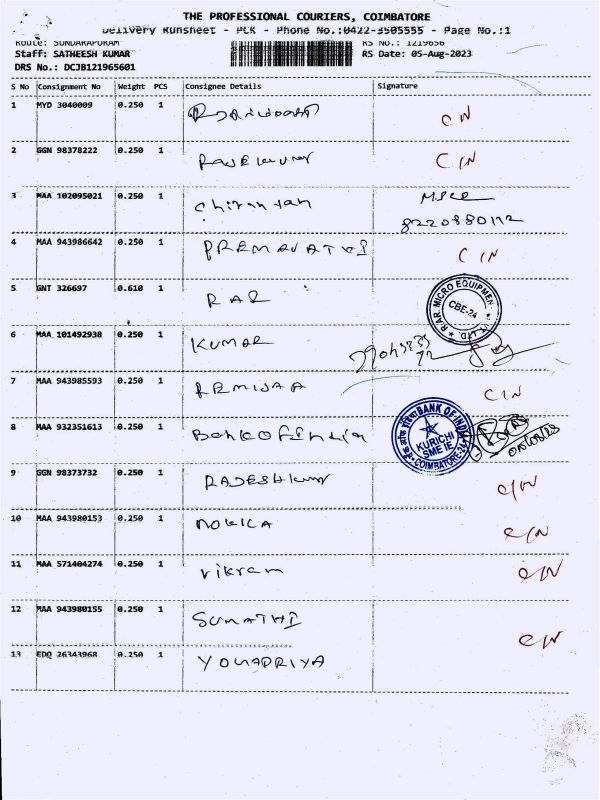 THE PROFESSIONAL COURIERS, COIMBATORE
Delivery Runsheet - PCK - Phone No.:0422-3505555 - Page No.:1
Route: SUNDARAPURAM RS No.: 1219656
Staff: SATHEESH KUMAR RS Date: 05-Aug-2023
DRS No.: DCJB121965601
S No Consignment No Weight PCS Consignee Details Signature
1 MYD 3040009 0.250 1 C/N
2 GGN 98378222 0.250 1 C/N
3 MAA 102095021 0.250 1 Chiranjan
4 MAA 943986642 0.250 1 PREMAVATHI C/N
5 GNT 326697 0.610 1 RAR
R.A.R. MICRO EQUIPMEN
CBE-24
6 MAA 101492938 0.250 1 KUMAR
7 MAA 943985593 0.250 1 C/N
8 MAA 932351613 0.250 1 Bank of India
BANK OF INDIA
KURICHI
SME IE
COIMBATORE
9 GGN 98373732 0.250 1 RAJESHkumar C/N
10 MAA 943980153 0.250 1 C/N
11 MAA 571404274 0.250 1 vikram C/N
12 MAA 943980155 0.250 1 SUMATHI C/N
13 EDQ 26343968 0.250 1